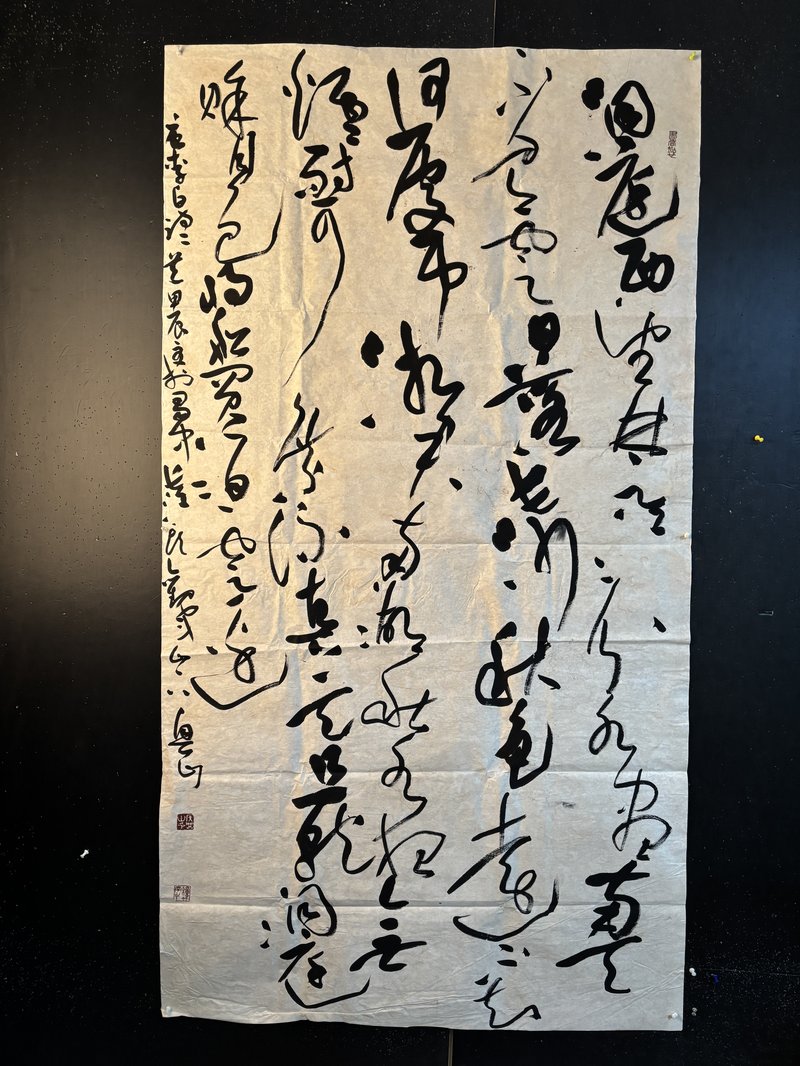 洞庭西望楚江分水盡南天
不見雲日落長沙秋色遠不知
何處弔湘君南湖秋水夜無
煙耐可乘流直上天且就洞庭
賒月色將船買酒白雲邊
李白詩 甲辰